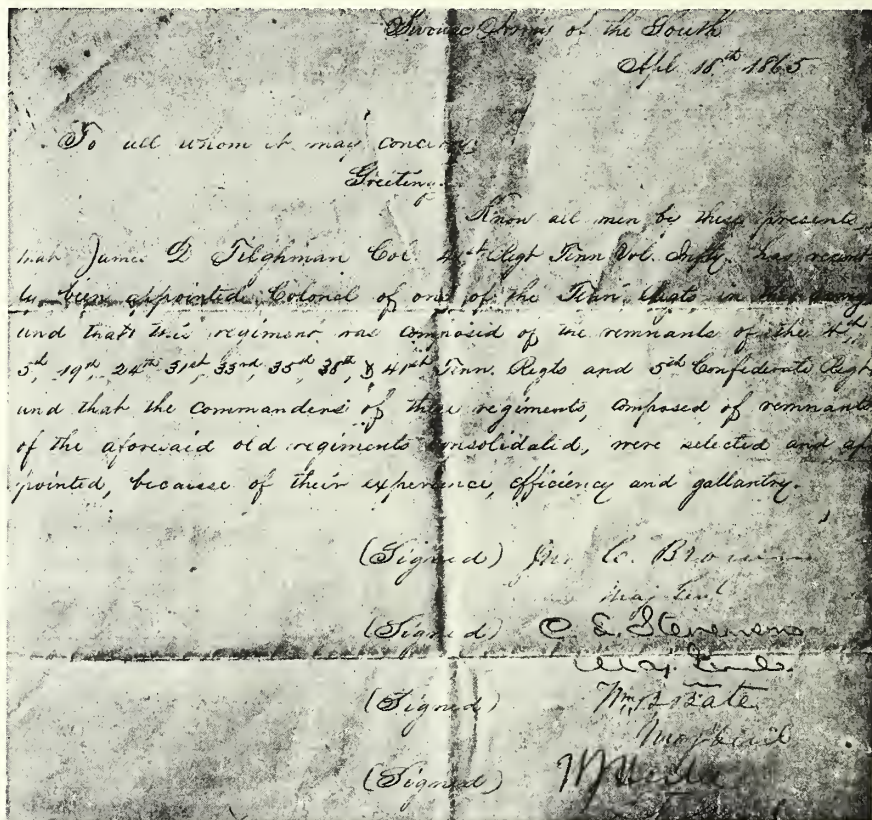 Army of the South
Apl 18th 1865
To all whom it may concern,
Greeting.
Know all men by these presents,
that James D Tilghman Col. 41st Regt Tenn Vol. Infty. has recent
ly been appointed Colonel of one of the Tenn. Regts in this army
and that this regiment was composed of the remnants of the 4th,
5th, 19th, 24th 31st, 33rd, 35th, 38th, & 41st Tenn. Regts and 5th Confederate Regt.
and that the commanders of these regiments, composed of remnants
of the aforesaid old regiments consolidated, were selected and ap
pointed, because of their experience, efficiency and gallantry.
(Signed) Jno C. Brown
Maj Genl
(Signed) C. L. Stevenson
Maj. Genl.
(Signed) Wm B Bate
Maj Genl
(Signed)